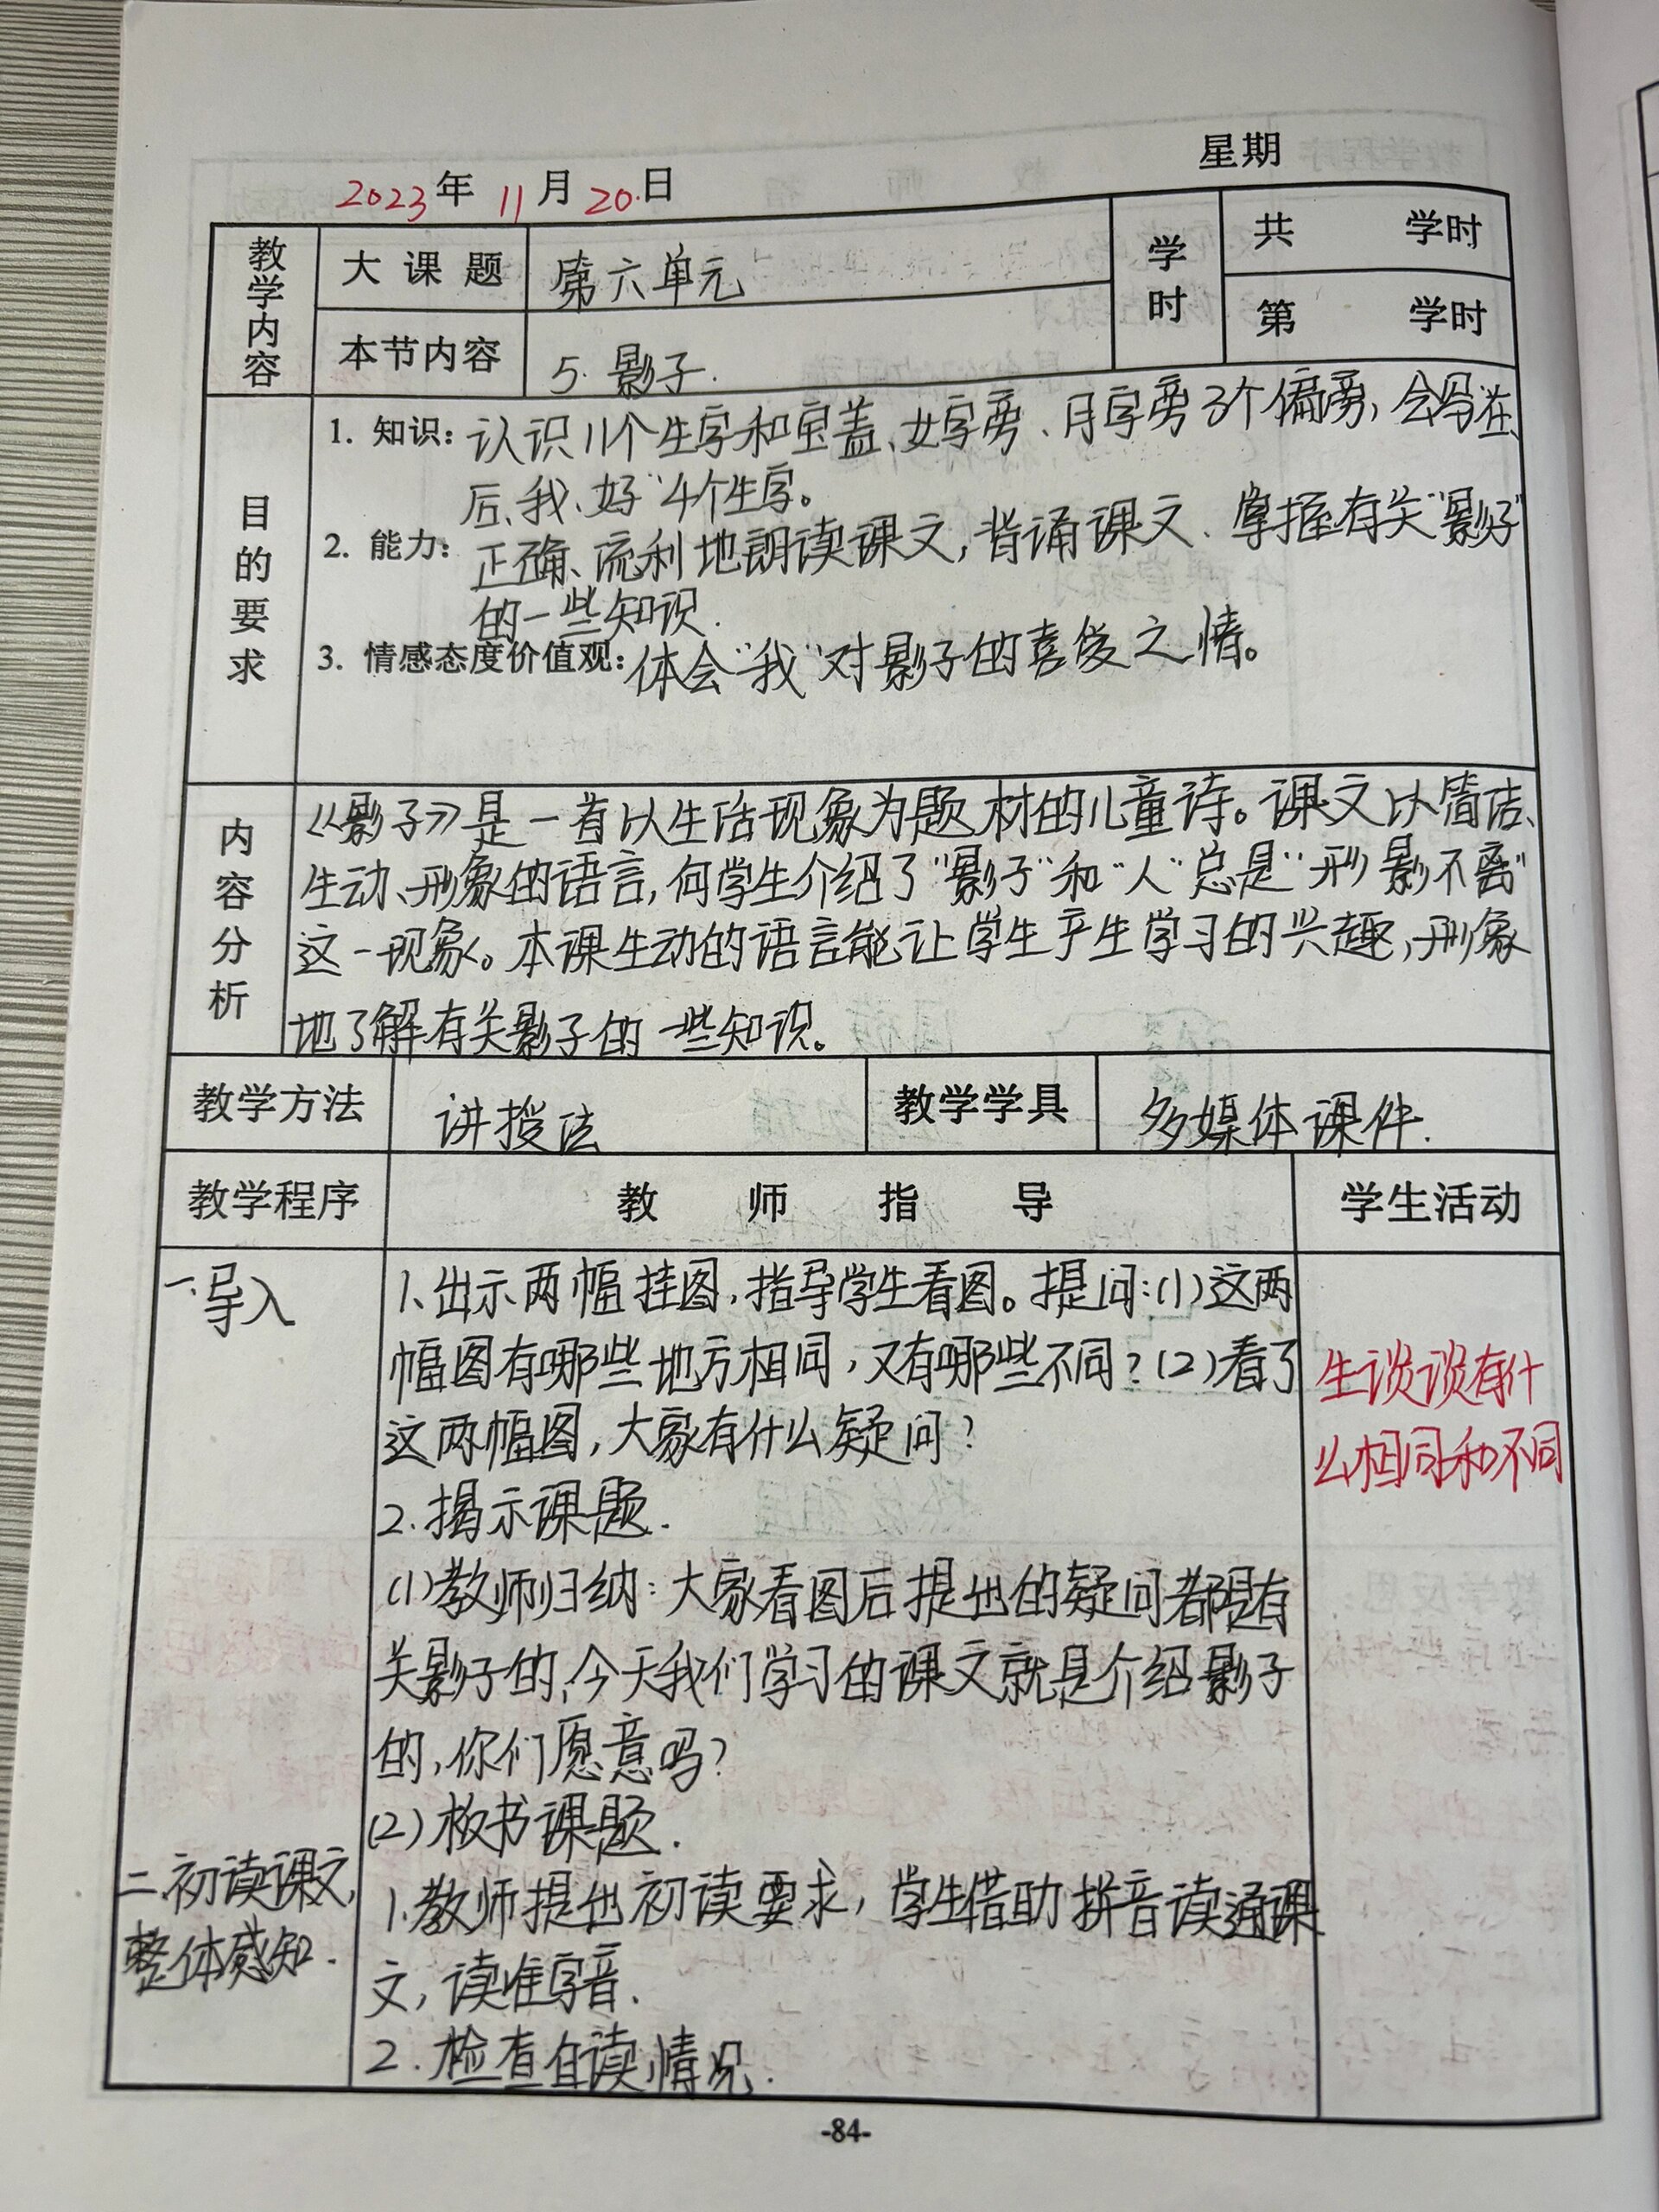 星期
2023年 11月 20.日
教学内容
大课题
第六单元
学时
共 学时
本节内容
5. 影子.
第 学时
目的要求
1. 知识: 认识11个生字和宝盖、女字旁、月字旁3个偏旁, 会写在、
后、我、好"4个生字。
2. 能力: 正确、流利地朗读课文, 背诵课文. 掌握有关"影子"
的一些知识.
3. 情感态度价值观: 体会"我"对影子的喜爱之情。
内容分析
《影子》是一首以生活现象为题材的儿童诗。课文以简洁、
生动、形象的语言, 向学生介绍了"影子"和"人"总是"形影不离"
这一现象。本课生动的语言能让学生产生学习的兴趣, 形象
地了解有关影子的一些知识。
教学方法
讲授法
教学学具
多媒体课件.
教学程序
教师指导
学生活动
一.导入
1、出示两幅挂图, 指导学生看图。提问:(1)这两
幅图有哪些地方相同, 又有哪些不同?(2)看了
这两幅图, 大家有什么疑问?
生谈谈有什
么相同和不同
2.揭示课题.
(1)教师归纳: 大家看图后提出的疑问都是有
关影子的, 今天我们学习的课文就是介绍影子
的, 你们愿意吗?
(2)板书课题.
二.初读课文,
整体感知.
1.教师提出初读要求, 学生借助拼音读通课
文, 读准字音.
2.检查自读情况.
-84-